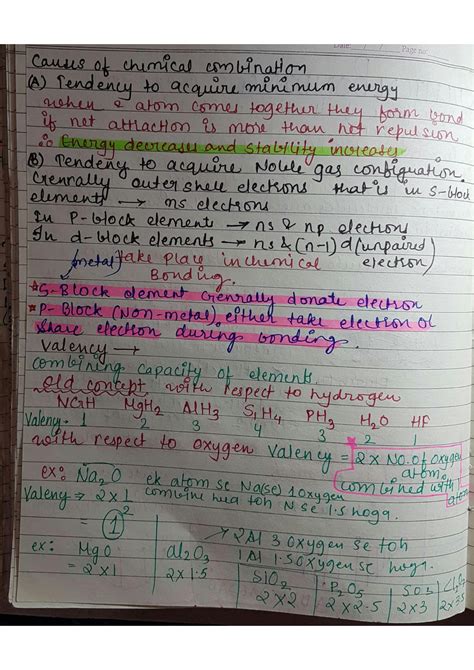 Date: / / Page no:
Causes of chemical combination
(A) Tendency to acquire minimum energy
when 2 atom comes together they form bond
if net attraction is more than net repulsion
∴ Energy decreases and stability increases
(B) Tendency to acquire Noble gas configuration.
Generally outer shell electrons that is in S-block
elements → ns electrons
In P-block elements → ns & np electrons
In d-block elements → ns & (n-1) d (unpaired
electron)
take place in chemical
(metal)
Bonding.
*S-Block element Generally donate electron
*P-Block (Non-metal), either take electron or
share electron during bonding.
Valency →
combining capacity of elements.
old concept with respect to hydrogen
MgH2 AlH3 SiH4 PH3 H2O HF
Valency. 1 2 3 4 3 2 1
with respect to oxygen Valency = 2 x No. of oxygen
atom
combined with 1
atom
ex: Na2O ek atom se Na(se) 1 Oxygen
combine hua toh N se 1.5 hoga.
Valeny ⇒ 2x1/2
= 1
→ 2Al 3 Oxygen se toh
1 Al 1.5 Oxygen se hoga.
ex: MgO Al2O3
= 2x1 2x1.5
SiO2 P2O5 SO3
2x2 2x2.5 2x3 2x3.5